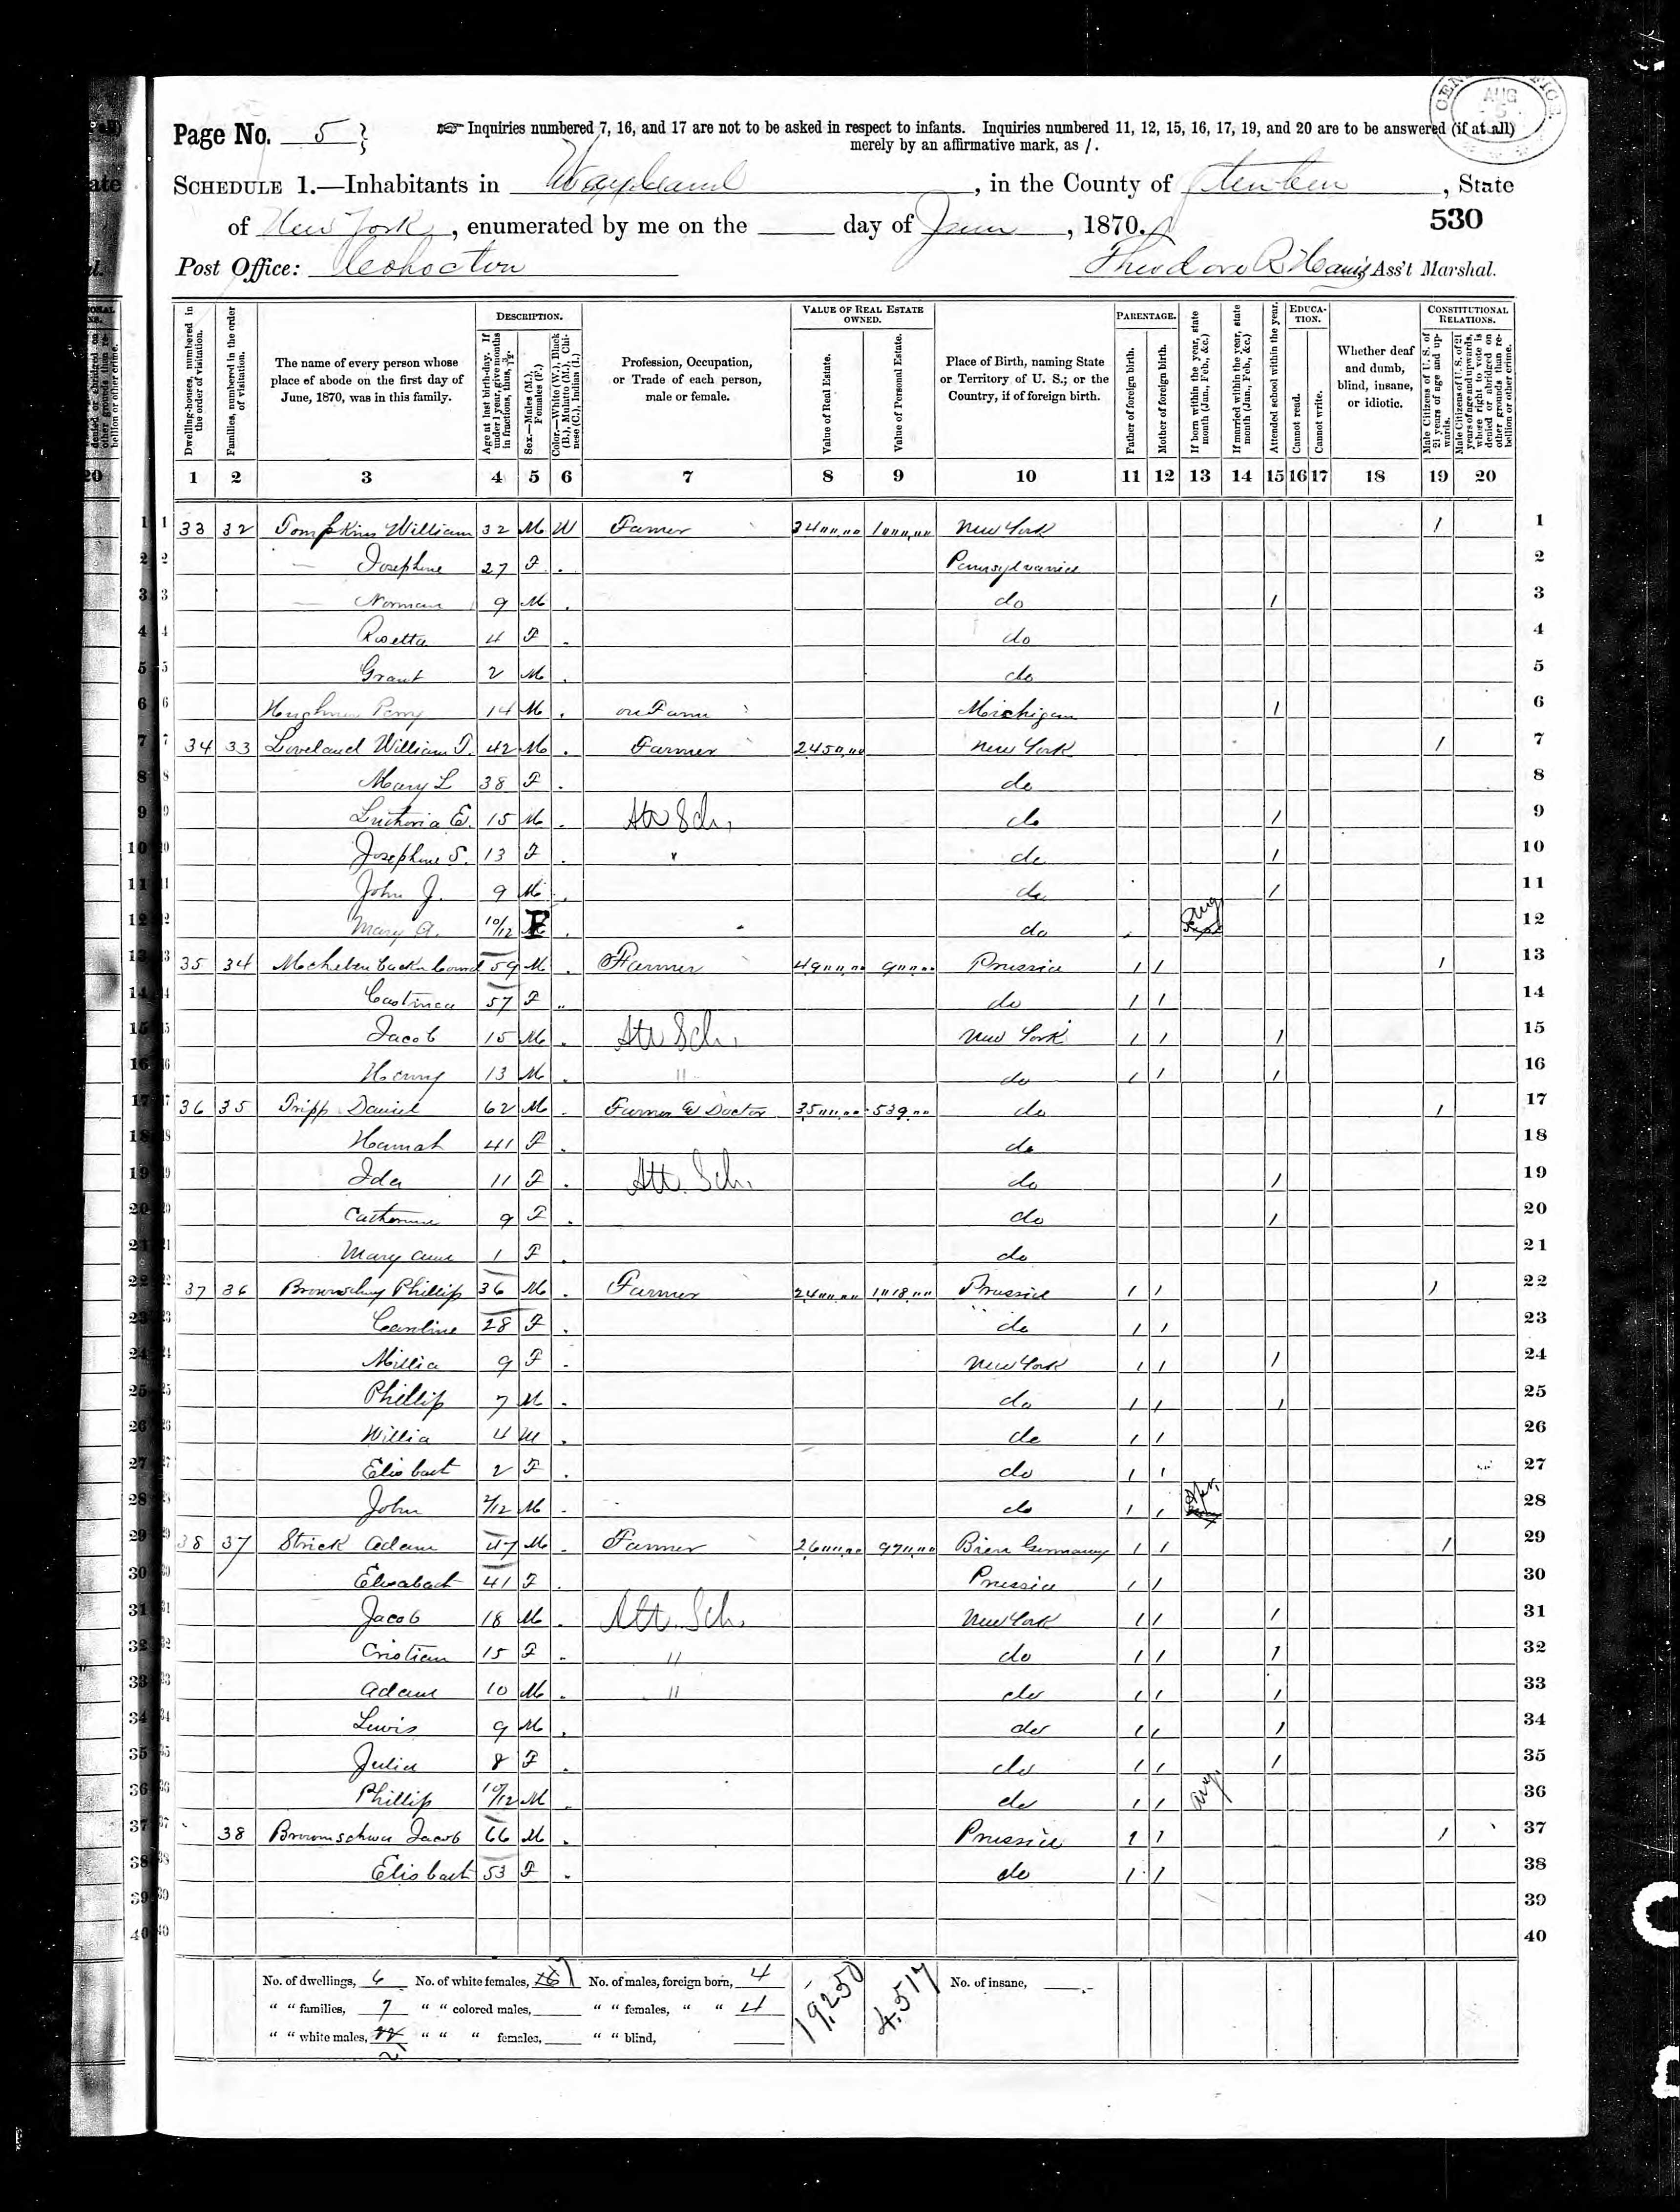 Page No. 5
Inquiries numbered 7, 16, and 17 are not to be asked in respect to infants. Inquiries numbered 11, 12, 15, 16, 17, 19, and 20 are to be answered (if at all)
merely by an affirmative mark, as /.
AUG
SCHEDULE 1.—Inhabitants in Wayland, in the County of Steuben, State
of New York, enumerated by me on the day of June, 1870.
530
Post Office: Cohocton
Theodore R. Harris Ass't Marshal.
Dwelling-houses, numbered in the order of visitation.
Families, numbered in the order of visitation.
The name of every person whose place of abode on the first day of June, 1870, was in this family.
DESCRIPTION.
Age at last birth-day. If under 1 year, give months in fractions, thus, 3/12.
Sex.—Males (M.), Females (F.)
Color.—White (W.), Black (B.), Mulatto (M.), Chinese (C.), Indian (I.)
Profession, Occupation, or Trade of each person, male or female.
VALUE OF REAL ESTATE OWNED.
Value of Real Estate.
Value of Personal Estate.
Place of Birth, naming State or Territory of U. S.; or the Country, if of foreign birth.
PARENTAGE.
Father of foreign birth.
Mother of foreign birth.
If born within the year, state month (Jan., Feb., &c.)
If married within the year, state month (Jan., Feb., &c.)
Attended school within the year.
EDUCATION.
Cannot read.
Cannot write.
Whether deaf and dumb, blind, insane, or idiotic.
CONSTITUTIONAL RELATIONS.
Male Citizens of U. S. of 21 years of age and upwards.
Male Citizens of U. S. of 21 years of age and upwards, where right to vote is denied or abridged on other grounds than rebellion or other crime.
1 2 3 4 5 6 7 8 9 10 11 12 13 14 15 16 17 18 19 20
1 33 32 Tompkins William 32 M W Farmer New York / 1
2 Josephine 27 F Pennsylvania 2
3 Norman 9 M do / 3
4 Rosetta 4 F do 4
5 Grant 2 M do 5
6 Perry 14 M on Farm Michigan / 6
7 34 33 Loveland William T. 42 M Farmer New York / 7
8 Mary L 38 F do 8
9 E. 15 M Att Sch. do / 9
10 Josephine S. 13 F " do / 10
11 John J. 9 M do / 11
12 Mary A. 10/12 F do Aug 12
13 35 34 59 M Farmer Prussia / / / 13
14 57 F do / / 14
15 Jacob 15 M Att Sch. New York / / / 15
16 Henry 13 M " do / / / 16
17 36 35 Tripp Daniel 62 M Farmer & Doctor do / 17
18 Hannah 41 F do 18
19 Ida 11 F Att. Sch. do / 19
20 Catherine 9 F do / 20
21 Mary Ann 1 F do 21
22 37 36 Phillip 36 M Farmer Prussia / / / 22
23 Caroline 28 F do / / 23
24 Millia 9 F New York / / / 24
25 Phillip 7 M do / / / 25
26 Willia 4 M do / / 26
27 Elisbact 2 F do / / 27
28 John 2/12 M do / / 28
29 38 37 Strick Adam 47 M Farmer Germany / / / 29
30 Elisabact 41 F Prussia / / 30
31 Jacob 18 M Att. Sch. New York / / / 31
32 Cristian 15 F " do / / / 32
33 Adam 10 M " do / / / 33
34 Lewis 9 M do / / / 34
35 Julia 8 F do / / / 35
36 Phillip 10/12 M do / / Aug. 36
37 38 Jacob 66 M Prussia / / / 37
38 Elisbact 53 F do / / 38
39 39
40 40
No. of dwellings, 6 No. of white females, No. of males, foreign born, 4 19250 4.517 No. of insane,
" " families, 7 " " colored males, " " females, " " 4
" " white males, 21 " " " females, " " blind,